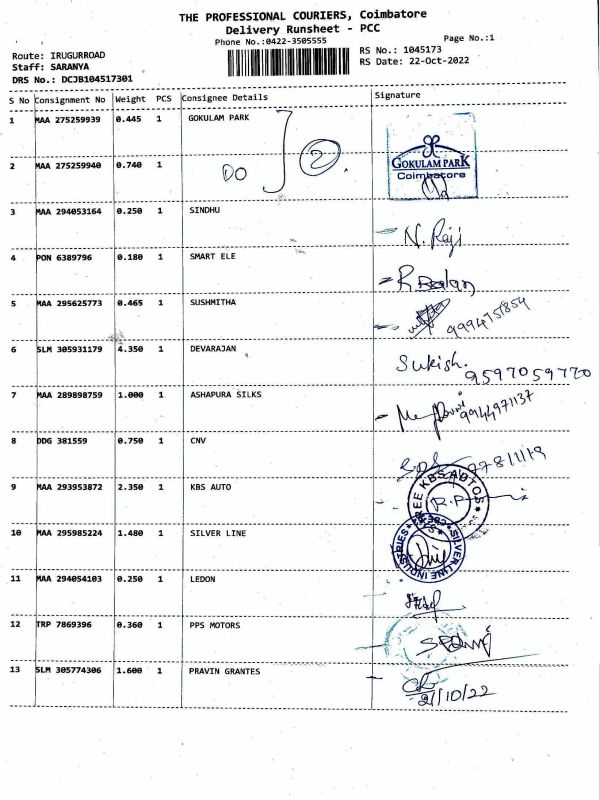 THE PROFESSIONAL COURIERS, Coimbatore
Delivery Runsheet - PCC
Phone No.:0422-3505555
Page No.:1
Route: IRUGURROAD
RS No.: 1045173
Staff: SARANYA
RS Date: 22-Oct-2022
DRS No.: DCJB104517301
S No Consignment No Weight PCS Consignee Details Signature
1 MAA 275259939 0.445 1 GOKULAM PARK
GOKULAM PARK
Coimbatore
2 MAA 275259940 0.740 1
DO 2
3 MAA 294053164 0.250 1 SINDHU
N. Raji
4 PON 6389796 0.180 1 SMART ELE
R Balan
5 MAA 295625773 0.465 1 SUSHMITHA
9994751854
6 SLM 305931179 4.350 1 DEVARAJAN
Sukish.
9597059770
7 MAA 289898759 1.000 1 ASHAPURA SILKS
9944971137
8 DDG 381559 0.750 1 CNV
9 MAA 293953872 2.350 1 KBS AUTO
KBS AUTOS
R.P
10 MAA 295985224 1.480 1 SILVER LINE
SILVER LINE INDUSTRIES
11 MAA 294054103 0.250 1 LEDON
12 TRP 7869396 0.360 1 PPS MOTORS
13 SLM 305774306 1.600 1 PRAVIN GRANTES
21/10/22